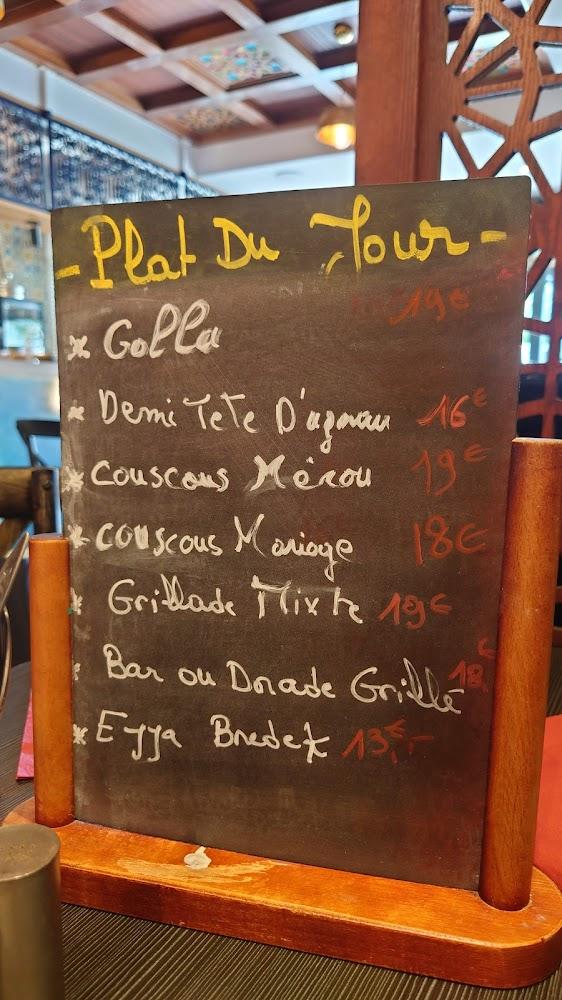 - Plat Du Jour -
19€
* Golla
* Demi Tete D'agnau 16€
* couscous Mérou 19€
* couscous Mariage 18€
* Grillade Mixte 19€
* Bar ou Dorade Grillé 18€
* Eyja Bredek 13€,-